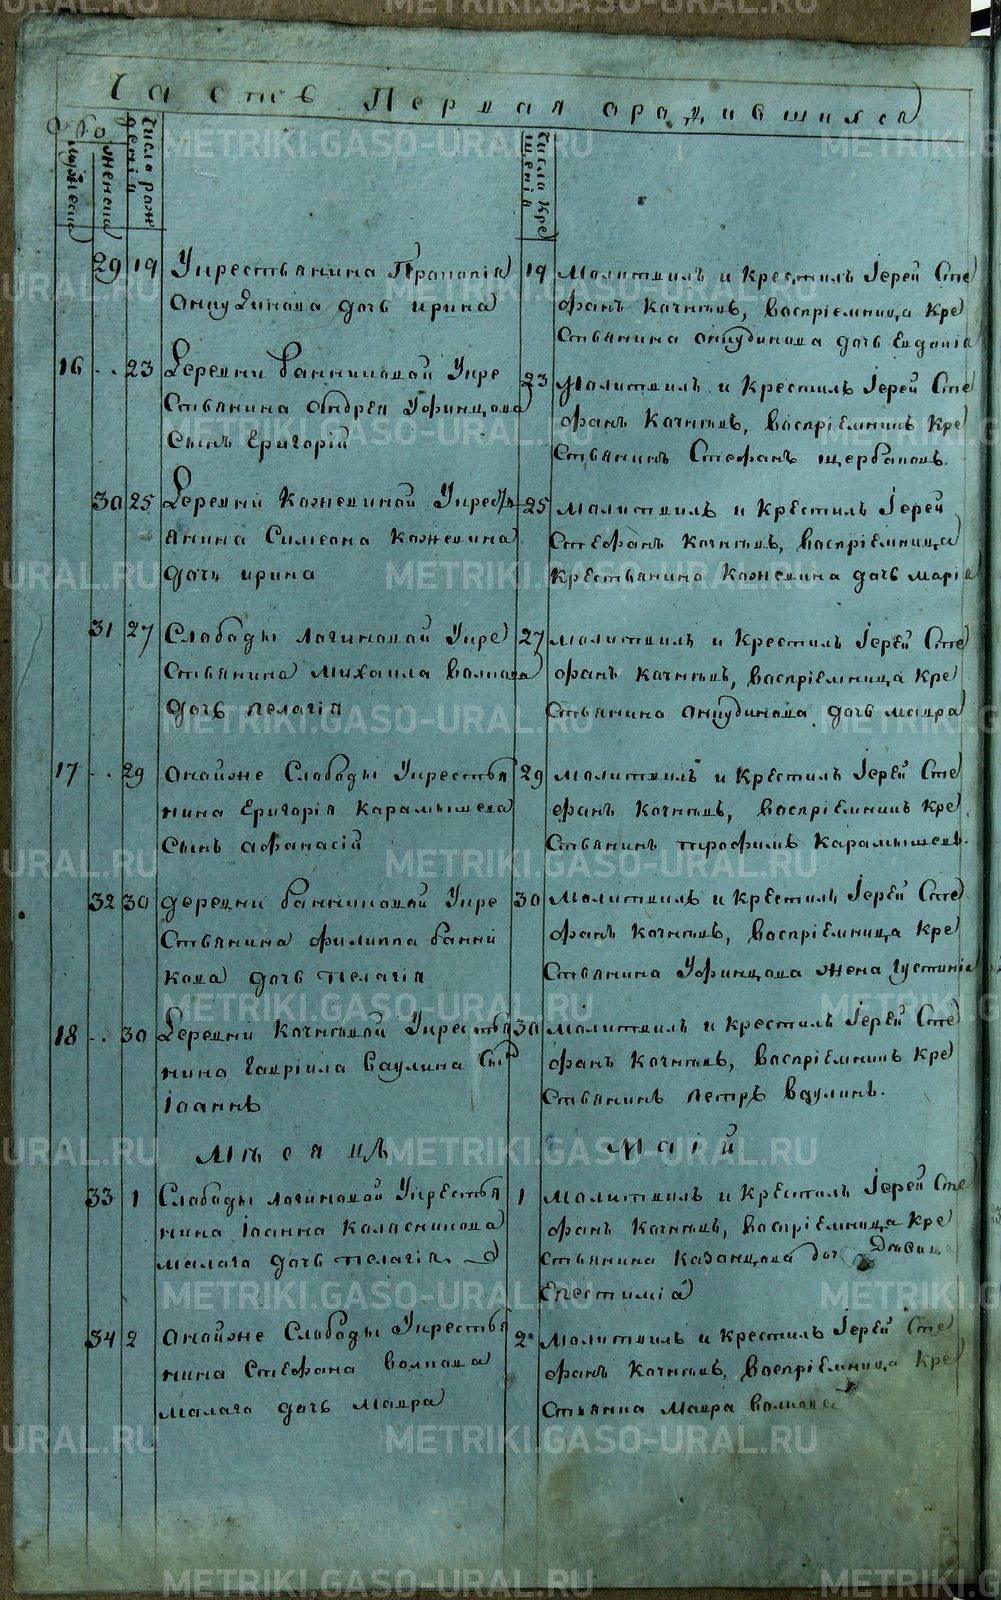 Часть Первая ородившихся
Обо
мужеска
женска
числа рож
дения
числа кре
щения
29 19 У крестьянина Прокопія
Анкудинова дочь ирина
19 Молитвилъ и Крестилъ Іерей Сте
фанъ Качнѣвъ, Воспріемница Кре
стьянина Анкудинова дочь Евдокія
16 .. 23 Деревни банниковой У кре
стьянина Андрея Уфинцова
Сынъ Григорій
23 Молитвилъ и Крестилъ Іерей Сте
фанъ Качнѣвъ, Воспріемникъ Кре
стьянинъ Стефанъ щербаковъ.
30 25 Деревни Кожевиной У крестья
янина Симеона Кожевина
дочь ирина
25 Молитвилъ и Крестилъ Іерей
Стефанъ Качнѣвъ, Воспріемница
Крестьянина Кожевина дочь Марія
31 27 Слободы логиновой У кре
стьянина Михаила Волкова
дочь пелагія
27 Молитвилъ и Крестилъ Іерей Сте
фанъ Качнѣвъ, Воспріемница Кре
стьянина Анкудинова дочь мавра
17 .. 29 Онойже Слободы У крестья
нина Григорія Карамышева
Сынъ афанасій
29 Молитвилъ и Крестилъ Іерей Сте
фанъ Качнѣвъ, Воспріемникъ Кре
стьянинъ трофимъ Карамышевъ.
32 30 деревни банниковой У кре
стьянина филиппа банни
кова дочь пелагія
30 Молитвилъ и Крестилъ Іерей Сте
фанъ Качнѣвъ, Воспріемница Кре
стьянина Уфинцова жена Густинія
18 .. 30 Деревни Качнѣвой У крестья
нина Гавріила Ваулина Сынъ
іоаннъ
30 Молитвилъ и Крестилъ Іерей Сте
фанъ Качнѣвъ, Воспріемникъ Кре
стьянинъ петръ Ваулинъ.
Мѣсяцъ Маій
33 1 Слободы логиновой У крестья
нина іоанна Колясникова
малаго дочь пелагія
1 Молитвилъ и Крестилъ Іерей Сте
фанъ Качнѣвъ, Воспріемница Кре
стьянина Казанцова доч Дѣвица
Епестимія
34 2 Онойже Слободы У крестья
нина Стефана Волкова
малаго дочь Мавра
2 Молитвилъ и Крестилъ Іерей Сте
фанъ Качнѣвъ, Воспріемница Кре
стьянка Мавра Волкова
METRIKI.GASO-URAL.RU